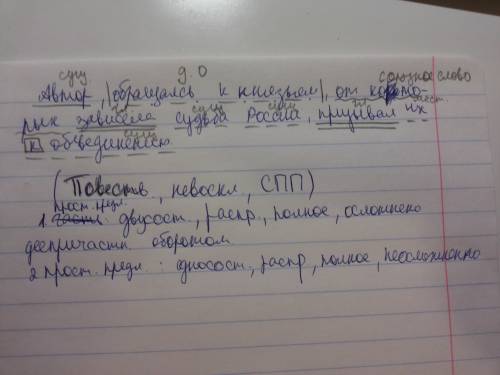 сущ д.О союзное слово
Автор, |обращаясь к князьям|, от кото-
гл сущ сущ гл мест.
рых зависела судьба России, призывал их
сущ
к объединению.
(Повеств, невоскл, СПП)
прост. предл.
1 двусост, распр, полное, осложнено
деепричастн оборотом
2 прост. предл: односост, распр, полное, неосложненно